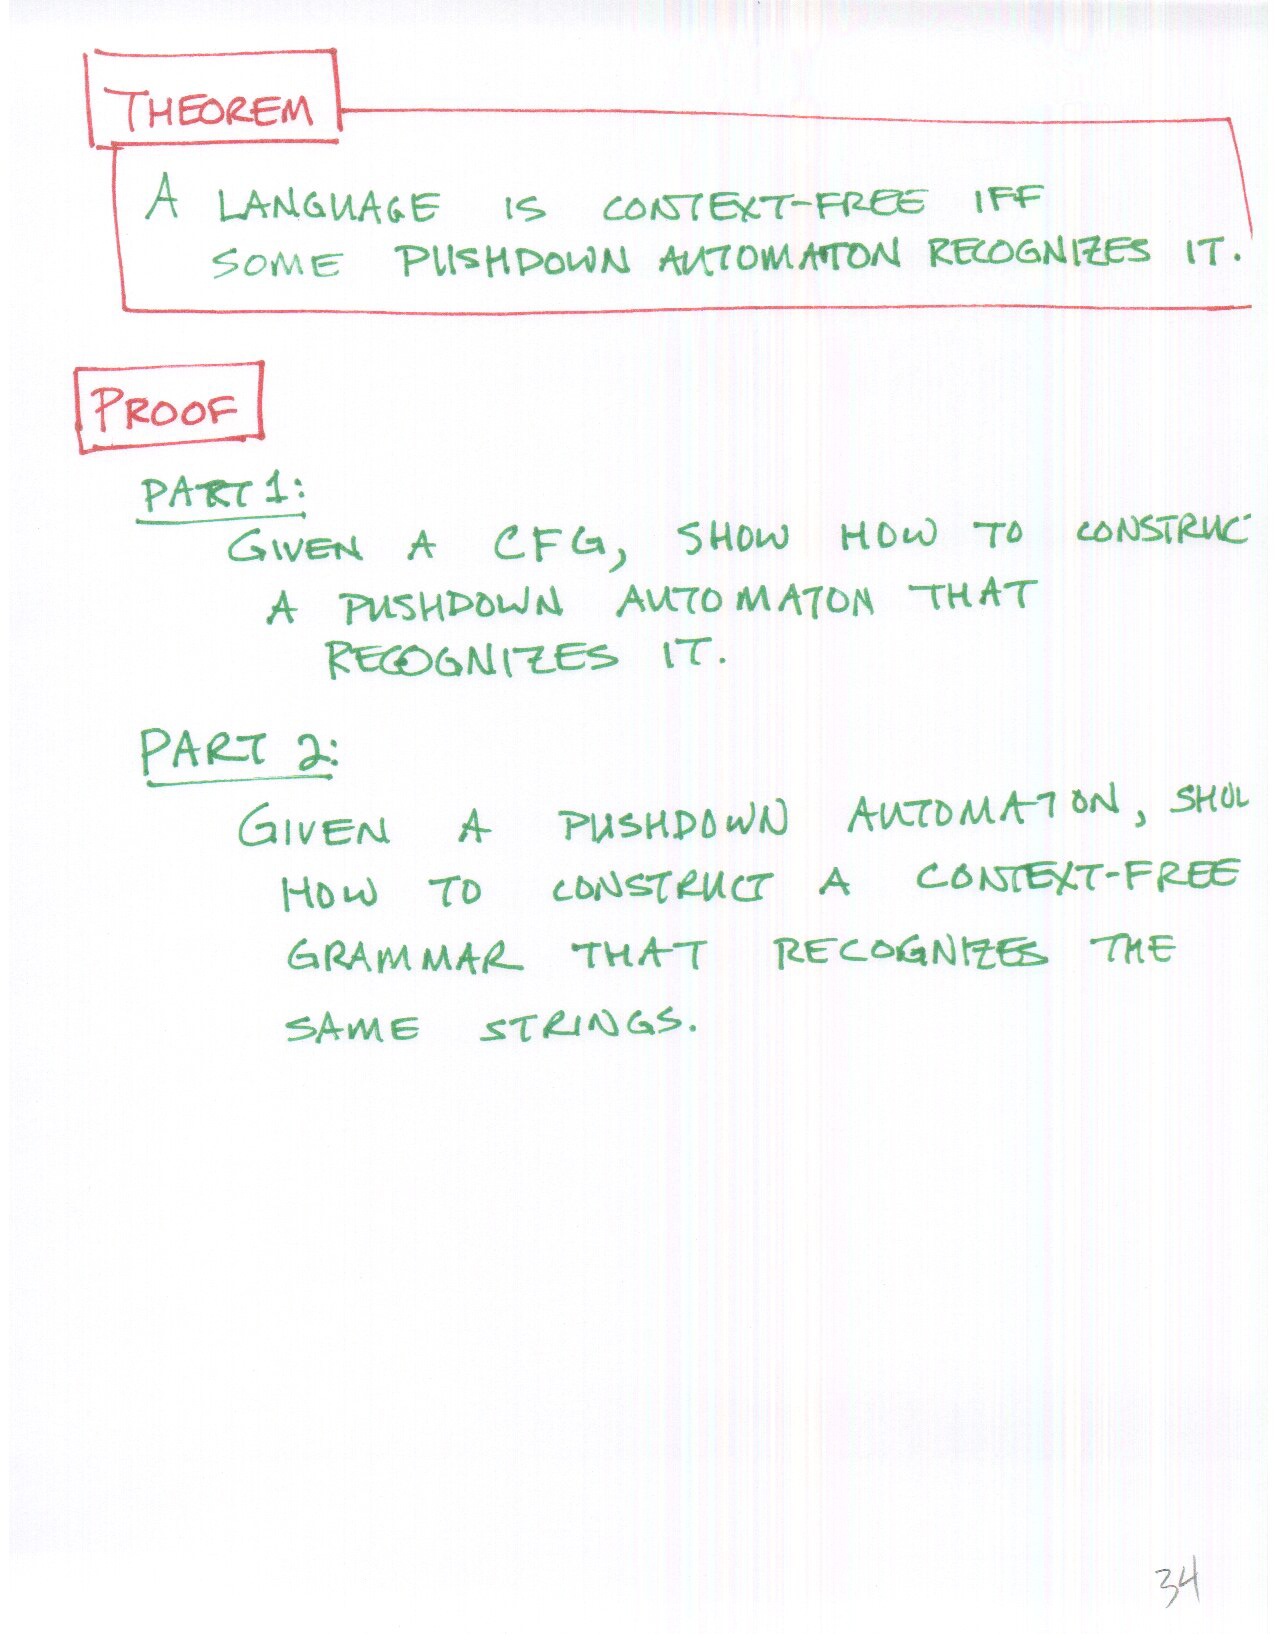 THEOREM
A LANGUAGE IS CONTEXT-FREE IFF
SOME PUSHDOWN AUTOMATON RECOGNIZES IT.
PROOF
PART 1:
GIVEN A CFG, SHOW HOW TO CONSTRUC
A PUSHDOWN AUTOMATON THAT
RECOGNIZES IT.
PART 2:
GIVEN A PUSHDOWN AUTOMATON, SHOW
HOW TO CONSTRUCT A CONTEXT-FREE
GRAMMAR THAT RECOGNIZES THE
SAME STRINGS.
34